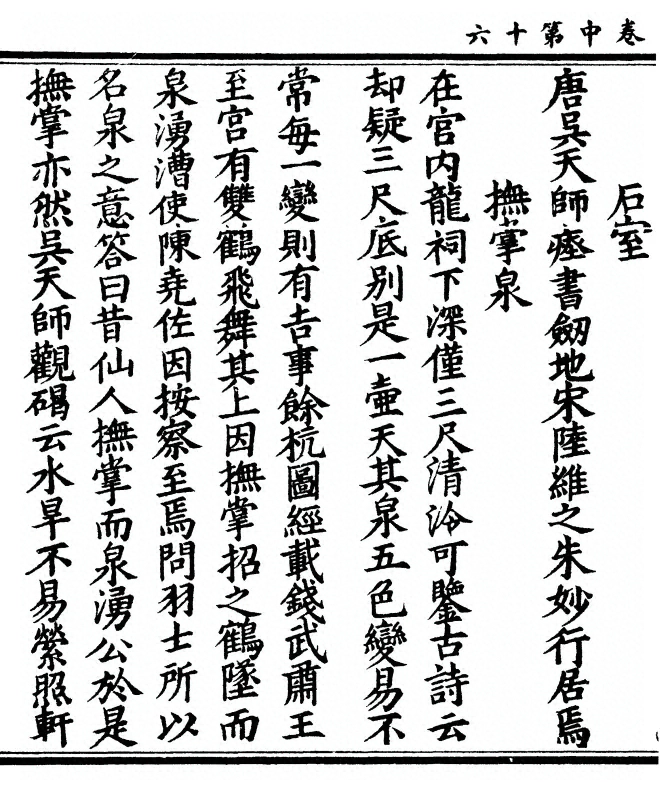 卷中第十六
石室
唐吳天師瘞書劒地宋陸維之朱妙行居焉
撫掌泉
在宮内龍祠下深僅三尺清泠可鑒古詩云
却疑三尺底别是一壺天其泉五色變易不
常每一變則有吉事餘杭圖經載錢武肅王
至宮有雙鶴飛舞其上因撫掌招之鶴墜而
泉湧漕使陳堯佐因按察至焉問羽士所以
名泉之意答曰昔仙人撫掌而泉湧公於是
撫掌亦然吳天師觀碣云水旱不易縈照軒